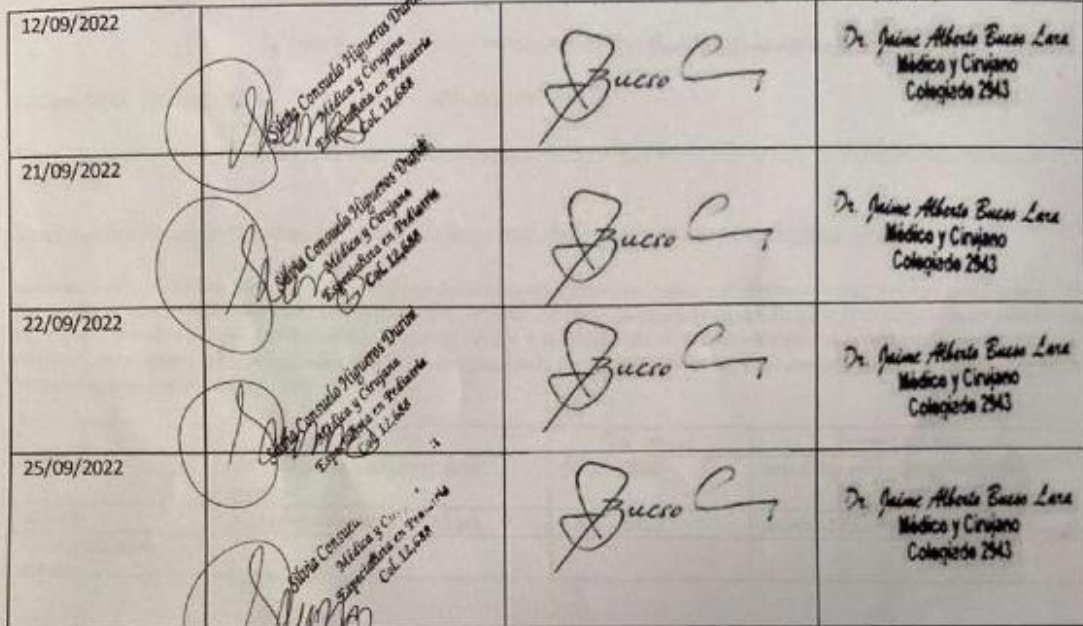 12/09/2022
Silvia Consuelo Higueros Durini
Médica y Cirujana
Especialista en Pediatría
Col. 12,688
Bueso
Dr. Jaime Alberto Bueso Lara
Médico y Cirujano
Colegiado 2943
21/09/2022
Silvia Consuelo Higueros Durini
Médica y Cirujana
Especialista en Pediatría
Col. 12,688
Bueso
Dr. Jaime Alberto Bueso Lara
Médico y Cirujano
Colegiado 2943
22/09/2022
Silvia Consuelo Higueros Durini
Médica y Cirujana
Especialista en Pediatría
Col. 12,688
Bueso
Dr. Jaime Alberto Bueso Lara
Médico y Cirujano
Colegiado 2943
25/09/2022
Silvia Consuelo
Médica y
Especialista en
Col. 12,688
Bueso
Dr. Jaime Alberto Bueso Lara
Médico y Cirujano
Colegiado 2943